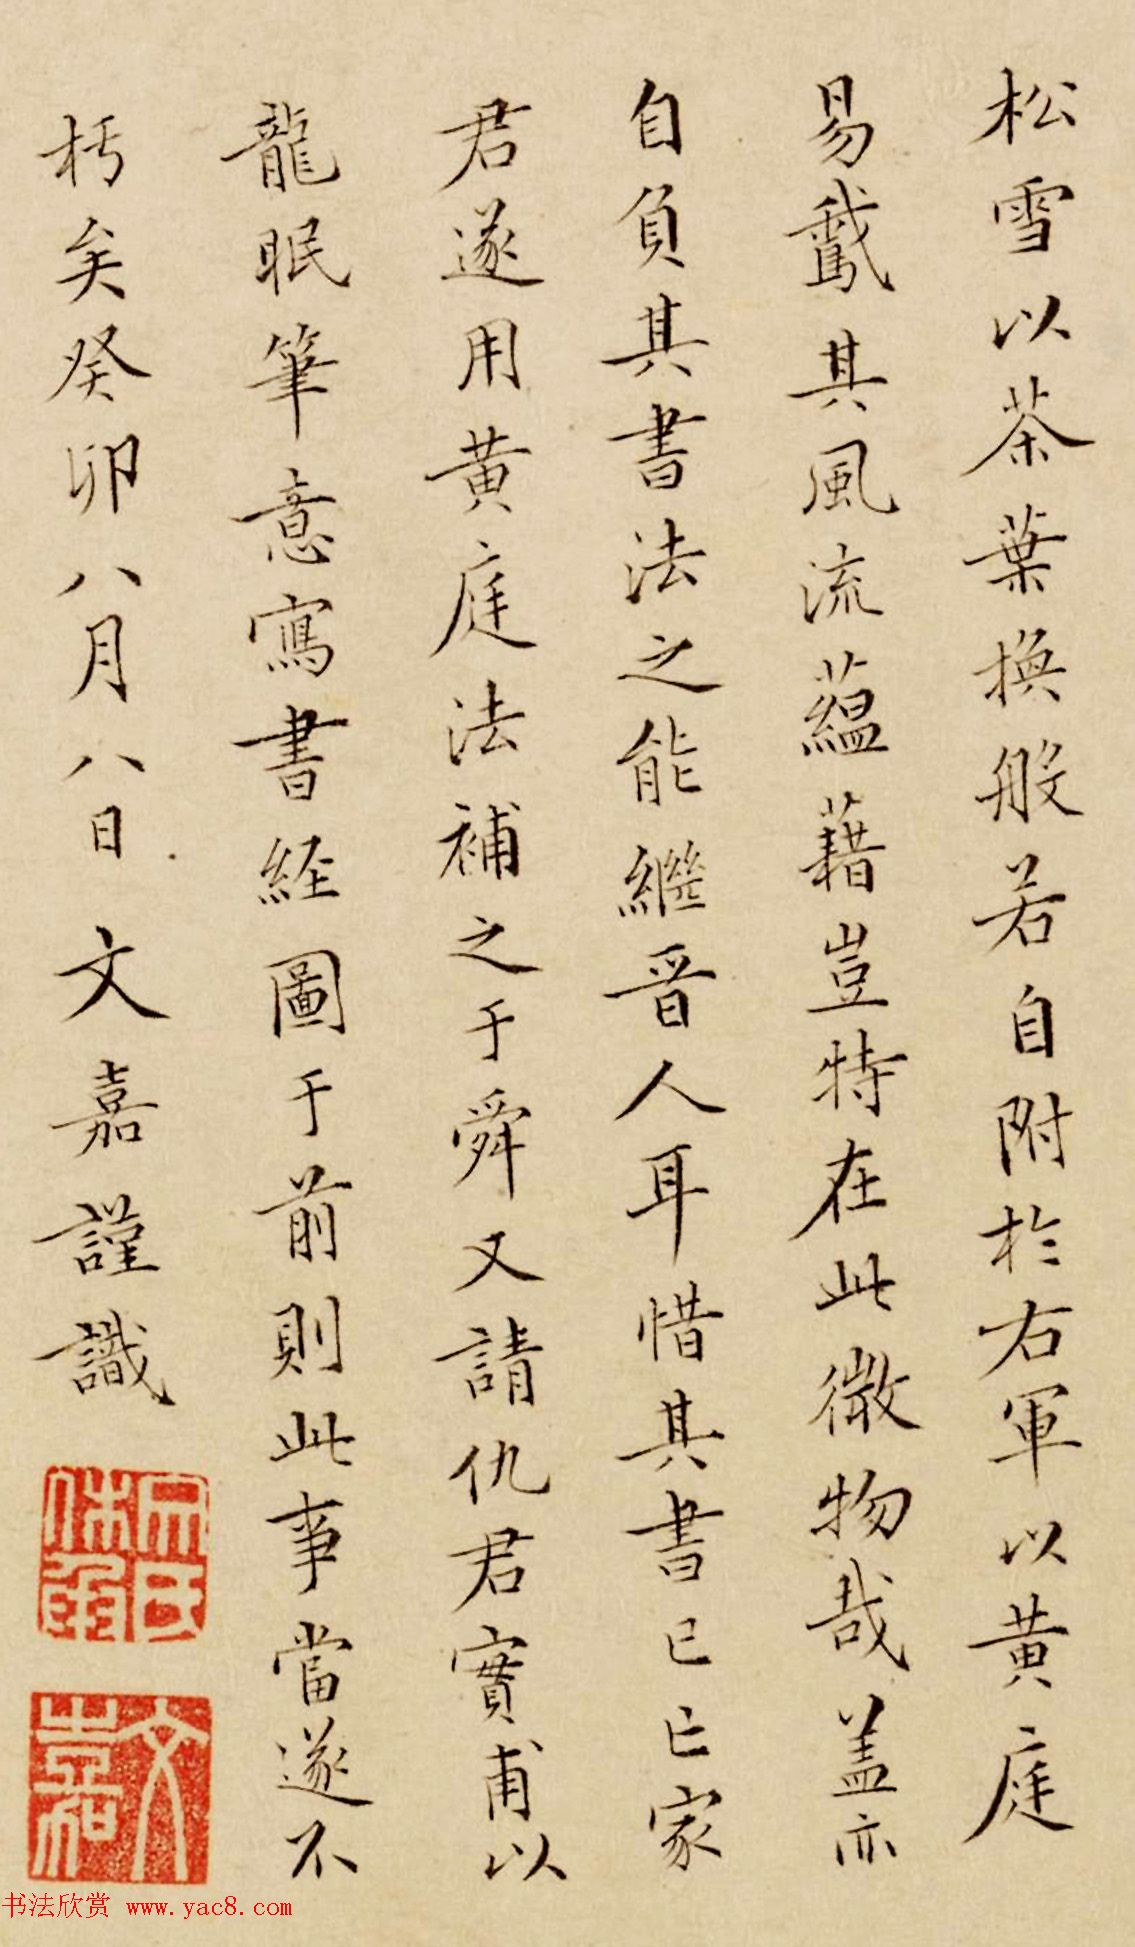 松雪以茶葉換般若自附於右軍以黄庭
易鵞其風流蘊藉豈特在此微物哉盖亦
自負其書法之能繼晉人耳惜其書已亡家
君遂用黄庭法補之于舜又請仇君實甫以
龍眠筆意寫書経圖于前則此事當遂不
朽矣癸卯八月八日文嘉謹識
文嘉
书法欣赏 www.yac8.com